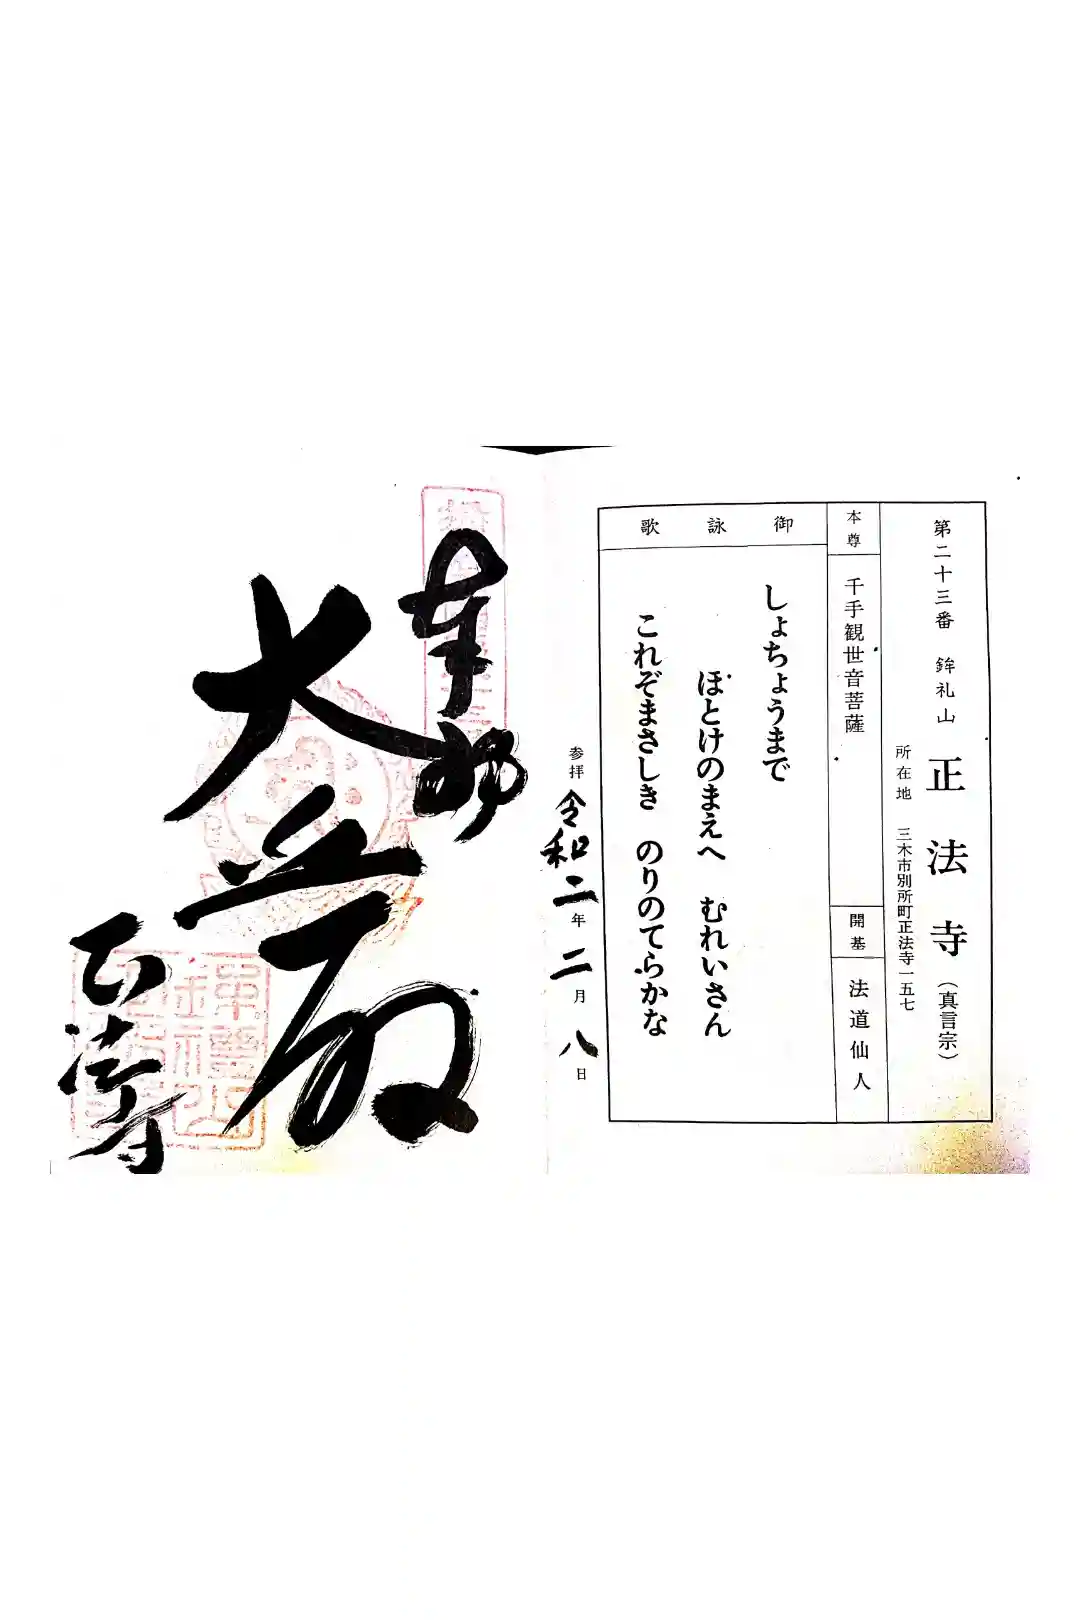 第二十三番 鉾礼山 正法寺（真言宗）
所在地 三木市別所町正法寺一五七
本尊 千手観世音菩薩
開基 法道仙人
御詠歌
しょちょうまで
ほとけのまえへ むれいさん
これぞまさしき のりのてらかな
参拝 令和二年二月八日
奉拝
大悲殿
正法寺